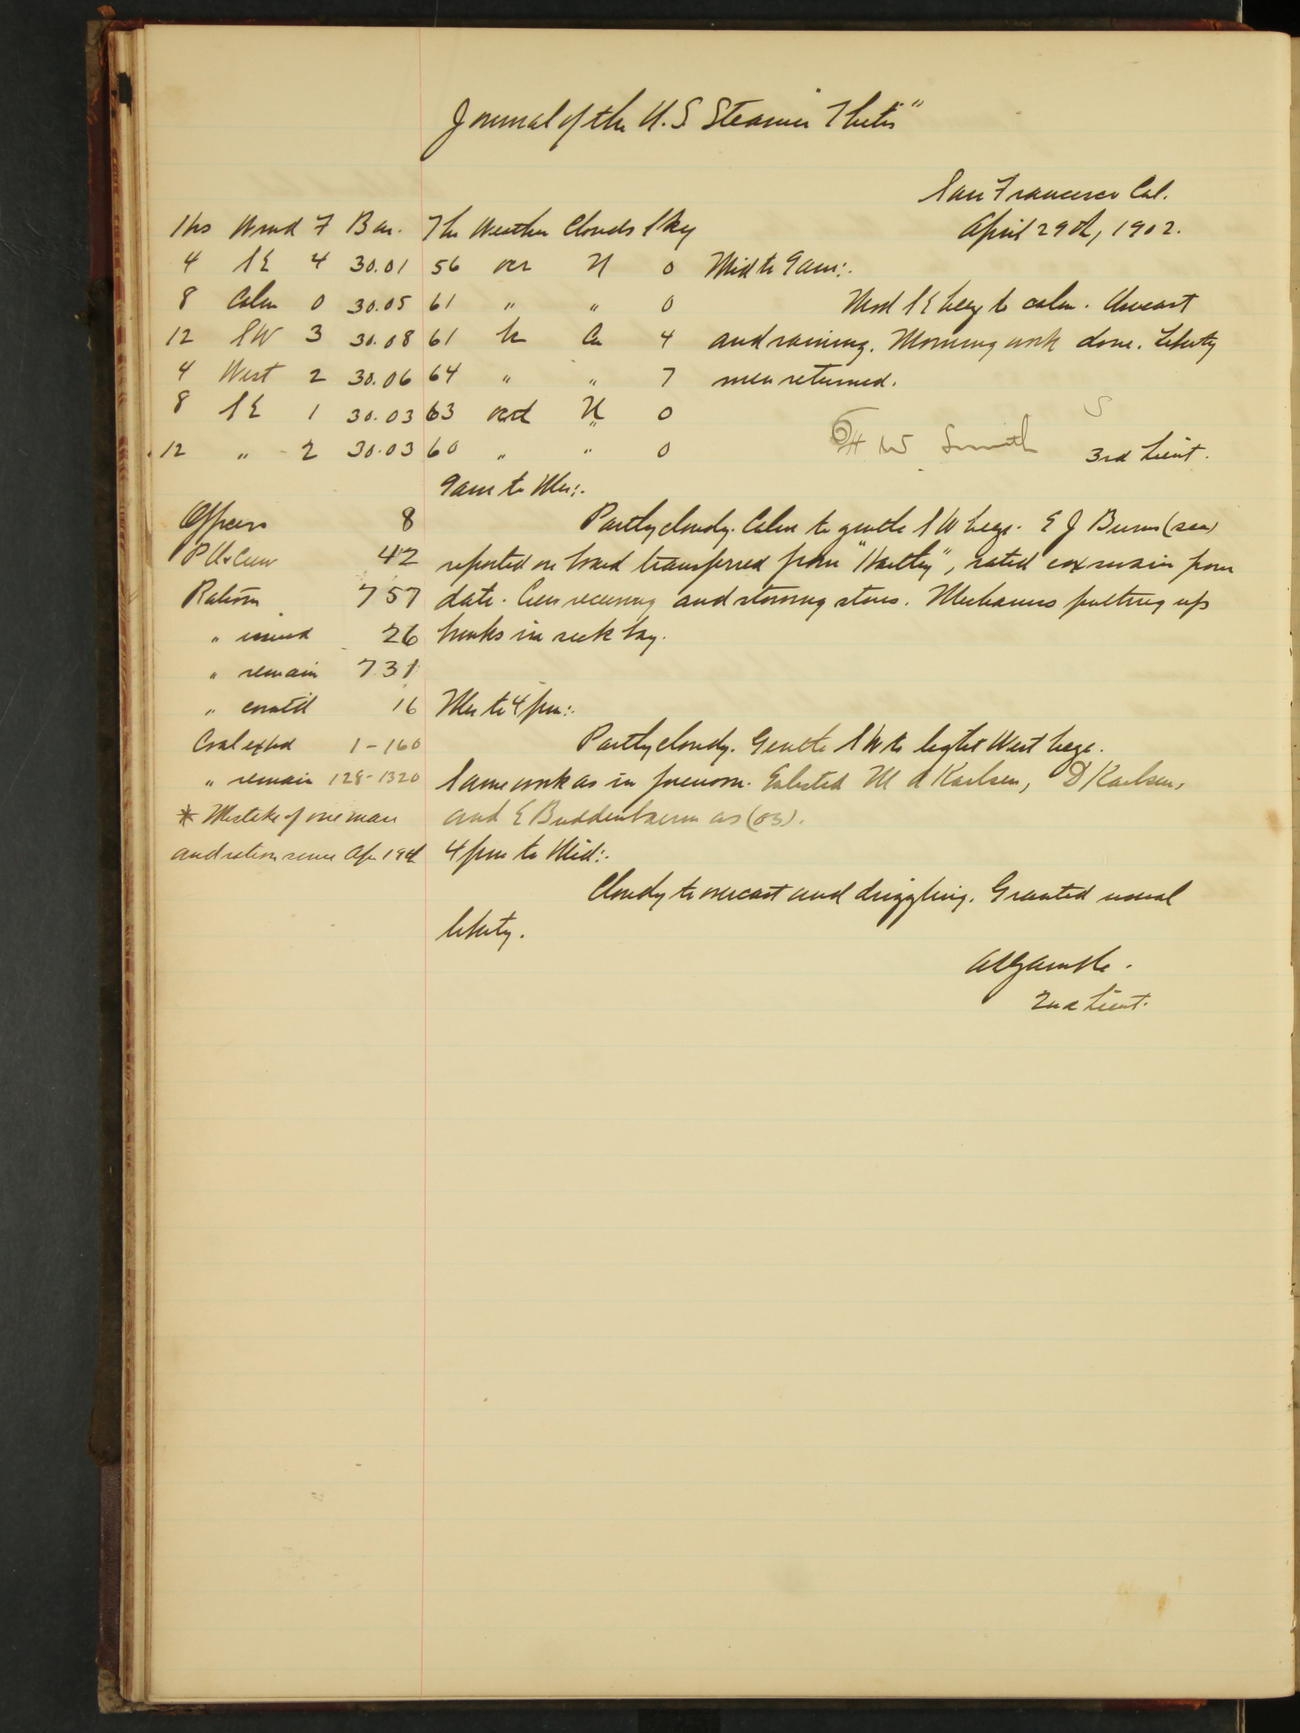 Journal of the U.S. Steamer Thetis"
San Francisco Cal.
April 29th, 1902.
Hrs Wind F Bar. Thr Weather Clouds Sky
4 SE 4 30.01 56 ocr N 0
8 Calm 0 30.05 61 " " 0
12 SW 3 30.08 61 bc Cu 4
4 West 2 30.06 64 " " 7
8 SE 1 30.03 63 ocrd N 0
12 " 2 30.03 60 " " 0
Mid to 9 am:.
Mod SE breeze to calm. Overcast
and raining. Morning work done. Liberty
men returned.
H W Smith
3rd Lieut.
Officers 8
P.O. & Crew 42
Rations 757
" issued 26
" remain 731
" comtd 16
Coal expd 1-160
" remain 128-1320
* Mistake of one man
and ration since Apr 19th
9 am to Mer:.
Partly cloudy. Calm to gentle SW breeze. E J Burns (sea)
reported on board transferred from "Hartley", rated coxswain from
date. Crew receiving and storing stores. Mechanics putting up
bunks in sick bay.
Mer to 4 pm:.
Partly cloudy. Gentle SW to light West breeze.
Same work as in forenoon. Enlisted M A Karlsen, D Karlsen,
and E Buddenbaum as (os).
4 pm to Mid:.
Cloudy to overcast and drizzling. Granted usual
liberty.
A L Gamble.
2nd Lieut.